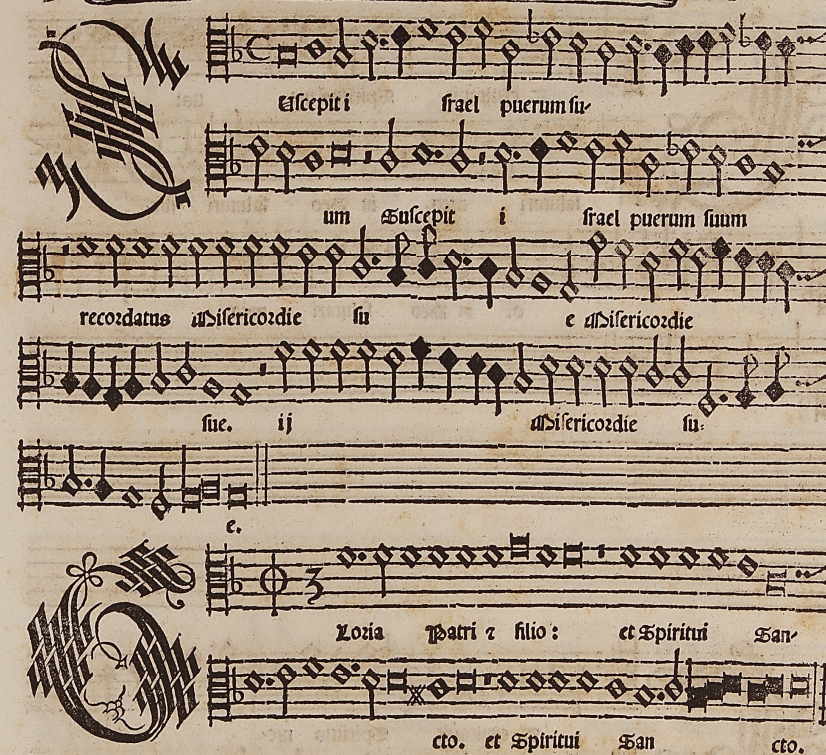 SUscepit i srael puerum su-
um Suscepit i srael puerum suum
recordatus Misericordie su e Misericordie
sue. ij Misericordie su-
e.
GLoria Patri ⁊ filio: et Spiritui San-
cto. et Spiritui San cto.